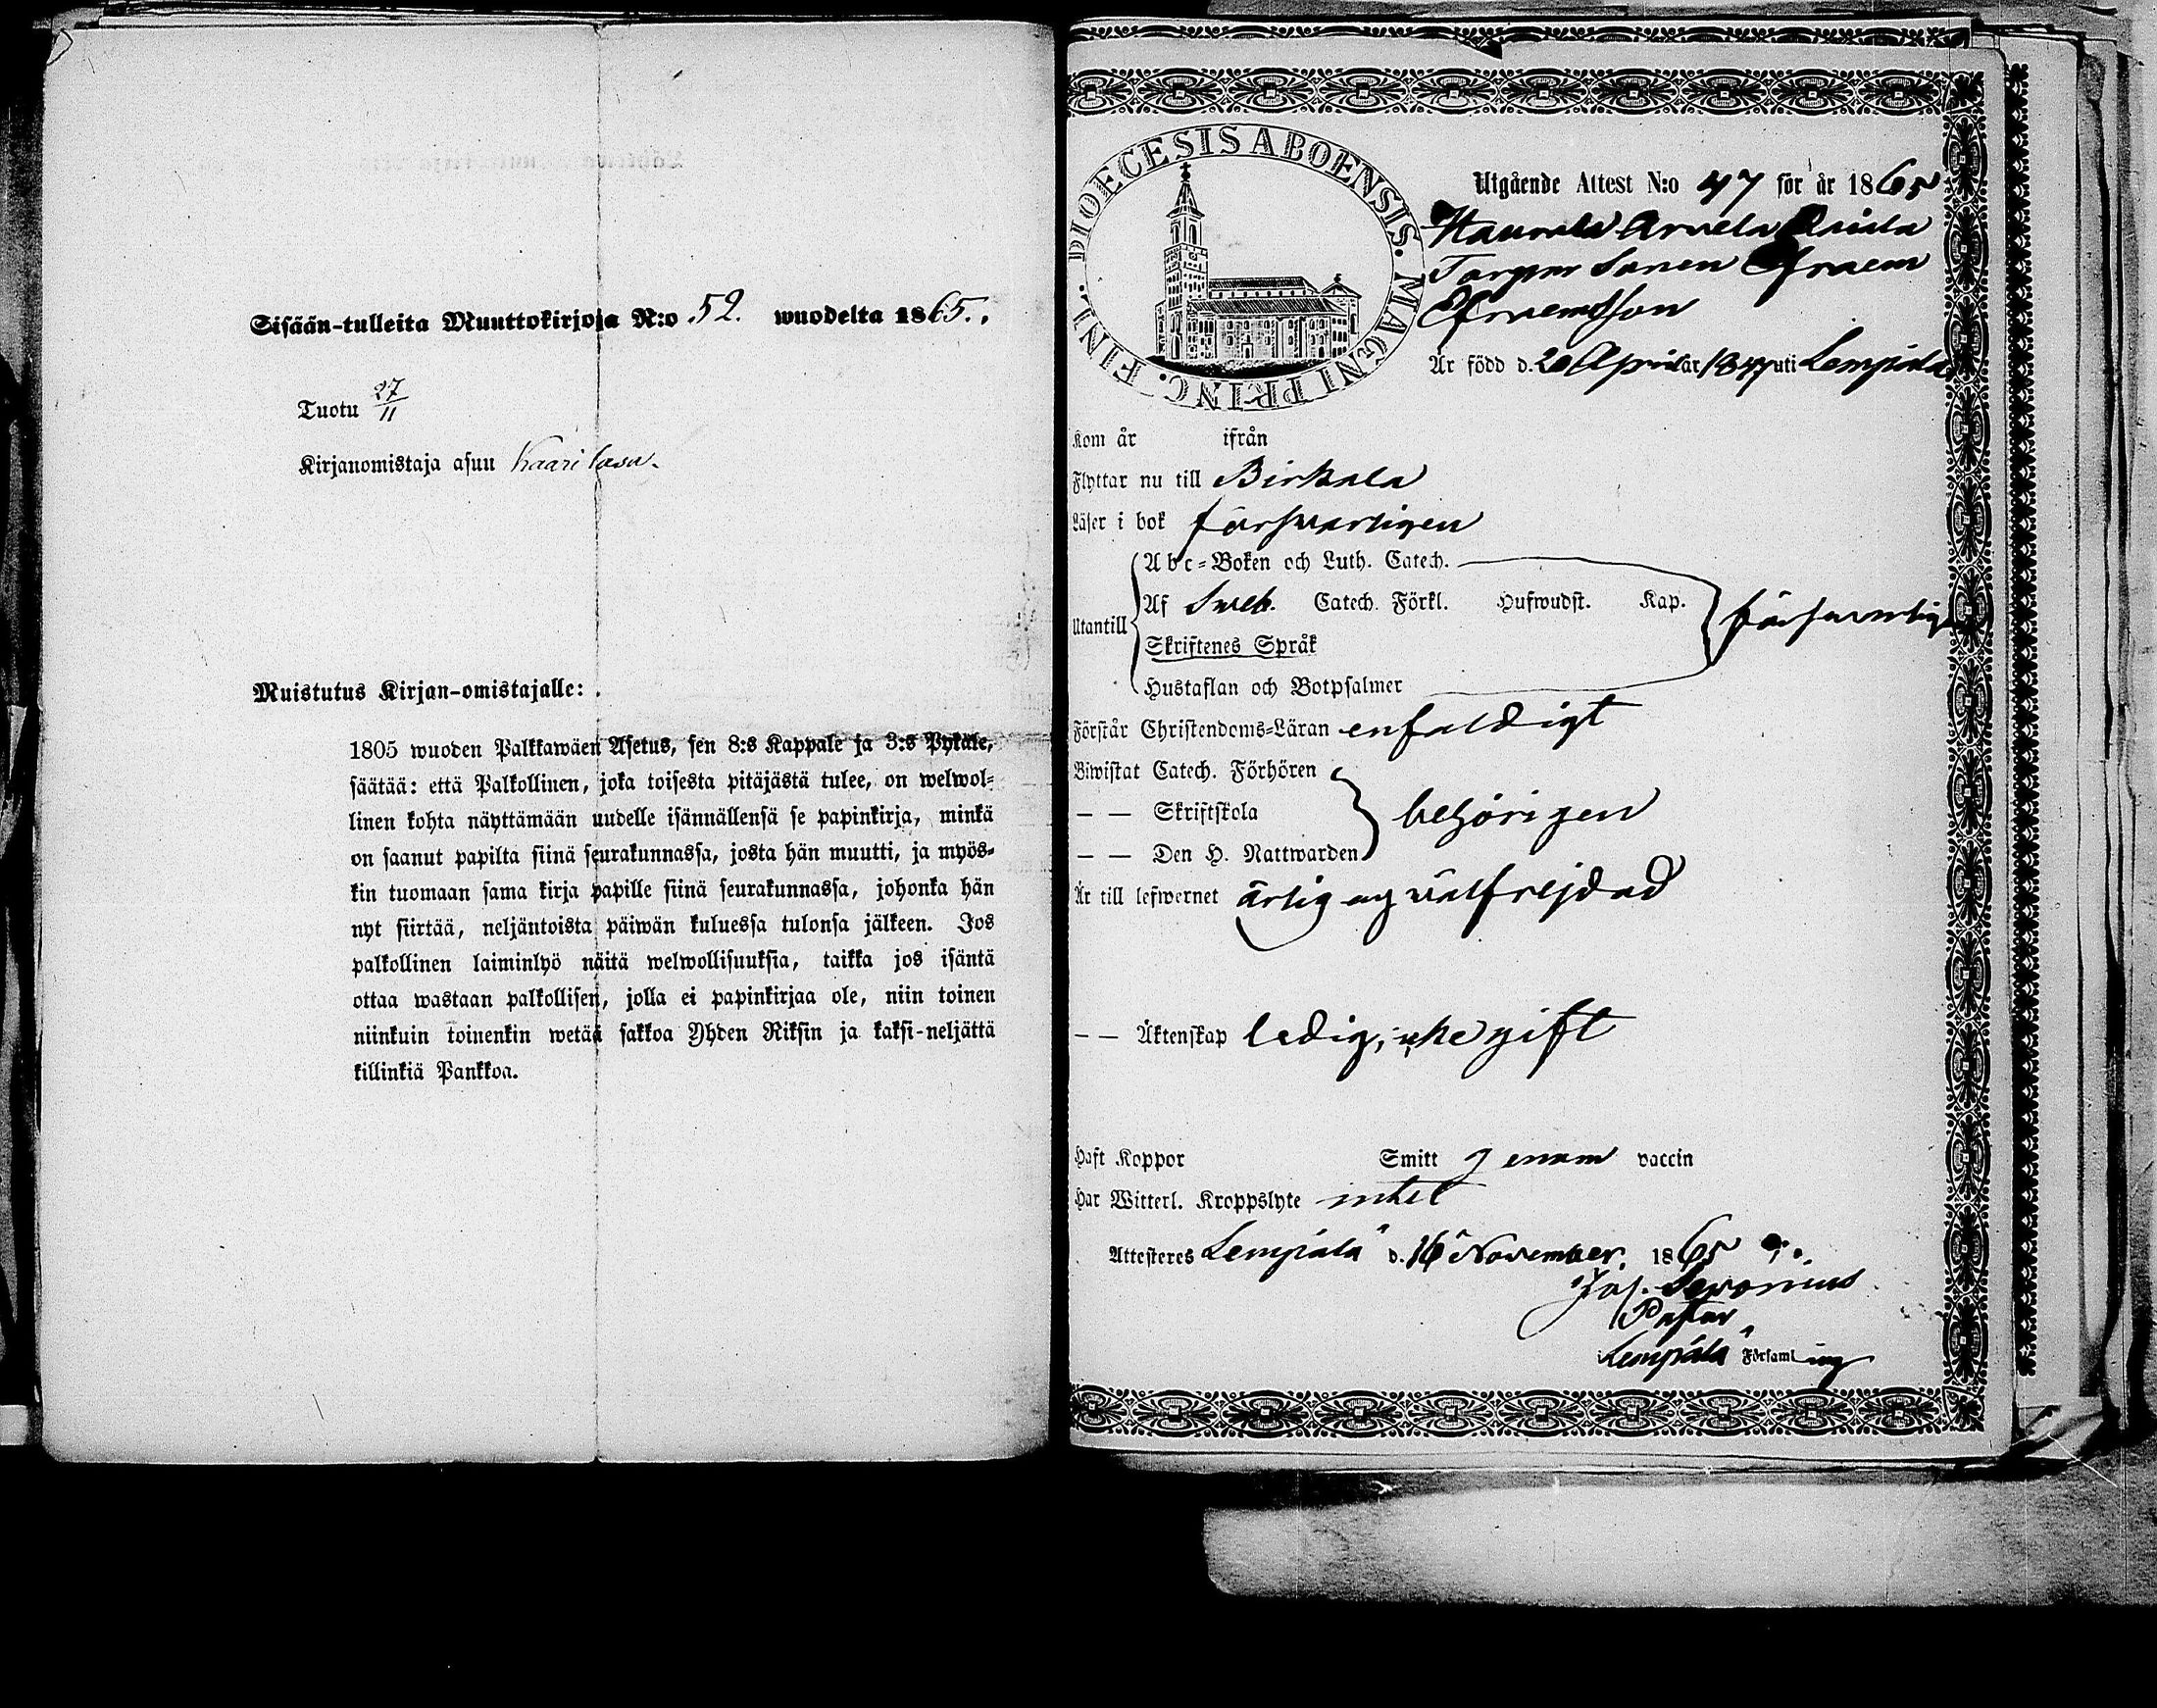 Sisään-tulleita Muuttokirjoja N:o 52. wuodelta 1865.
Tuotu 27/11
Kirjanomistaja asuu Kaarila
Muistutus Kirjan-omistajalle:
1805 wuoden Palkkawäen Asetus, sen 8:s Kappale ja 3:s Pykäle,
säätää: että Palkollinen, joka toisesta pitäjästä tulee, on welwol-
linen kohta näyttämään uudelle isännällensä se papinkirja, minkä
on saanut papilta siinä seurakunnassa, josta hän muutti, ja myös-
kin tuomaan sama kirja papille siinä seurakunnassa, johonka hän
nyt siirtää, neljäntoista päiwän kuluessa tulonsa jälkeen. Jos
palkollinen laiminlyö näitä welwollisuuksia, taikka jos isäntä
ottaa wastaan palkollisen, jolla ei papinkirjaa ole, niin toinen
niinkuin toinenkin wetää sakkoa Yhden Riksin ja kaksi-neljättä
killinkiä Pankkoa.
DIOECESIS ABOENSIS. MAGNI PRINC. FINL.
Utgående Attest N:o 47 för år 1865
Torpar Sonen Efraem
Efraemsson
Är född d. 20 April år 1847 uti Lempiälä
Kom år ifrån
Flyttar nu till Birkala
Läser i bok försvarligen
Utantill
Abc-Boken och Luth. Catech.
Af Sweb. Catech. Förkl. Hufwudst. Kap.
försvarlig
Skriftenes Språk
Hustaflan och Botpsalmer
Förstår Christendoms-Läran enfaldigt
Biwistat Catech. Förhören
— — Skriftskola behörigen
— — Den H. Nattwarden
Är till lefwernet ärlig og välfrejdad
— — Äktenskap ledig, icke gift
Haft Koppor Smitt genom vaccin
Har Witterl. Kroppslyte intet
Attesteres Lempiälä d. 16 November 1865
Pastor
i Lempiälä Församling